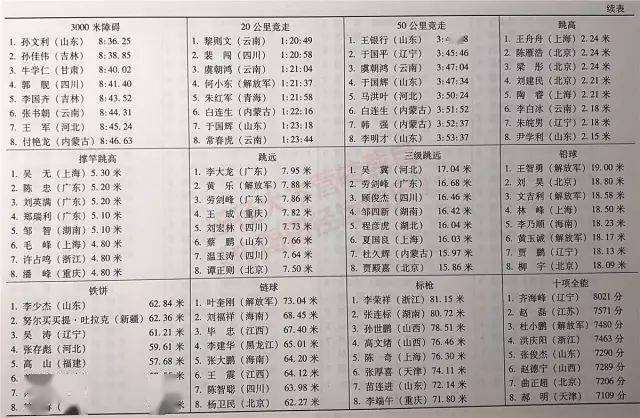 续表
3000 米障碍
1. 孙文利(山东) 8:36.25
2. 孙佳伟(吉林) 8:38.85
3. 牛学仁(甘肃) 8:40.02
4. 郭 舰(四川) 8:41.40
5. 李国齐(吉林) 8:43.52
6. 张书朝(云南) 8:44.31
7. 王 军(河北) 8:45.24
8. 付艳龙(内蒙古) 8:46.63
20 公里竞走
1. 黎则文(云南) 1:20:49
2. 裴 闯(四川) 1:20:58
3. 虞朝鸿(云南) 1:21:04
4. 何小东(解放军) 1:21:37
5. 朱红军(青海) 1:21:58
6. 白连生(内蒙古) 1:22:16
7. 于国辉(山东) 1:23:18
8. 常春虎(云南) 1:23:44
50 公里竞走
1. 王银行(山东) 3:4
2. 于国平(辽宁) 3:45:46
3. 虞朝鸿(云南) 3:47:04
4. 于国辉(山东) 3:47:34
5. 马洪叶(河北) 3:50:24
6. 白连生(内蒙古) 3:51:52
7. 韩 强(内蒙古) 3:52:37
8. 李明才(山东) 3:53:37
跳高
1. 王舟舟(上海) 2.24 米
2. 陈雁浩(北京) 2.24 米
3. 梁 彤(北京) 2.21 米
4. 刘建民(北京) 2.21 米
5. 陶 睿(上海) 2.21 米
6. 李白冰(云南) 2.18 米
7. 朱皖男(辽宁) 2.18 米
8. 尹学利(山东) 2.15 米
撑竿跳高
1. 吴 无(上海) 5.30 米
2. 陈 忠(广东) 5.20 米
3. 刘英满(广东) 5.20 米
4. 郑瑞利(广东) 5.10 米
5. 邹 智(湖南) 5.10 米
6. 毛 峰(上海) 4.80 米
7. 许占鸣(浙江) 4.80 米
8. 潘 峰(重庆) 4.80 米
跳远
1. 李大龙(广东) 7.95 米
2. 黄 乐(解放军) 7.88 米
3. 劳剑峰(广东) 7.86 米
4. 王 成(重庆) 7.82 米
5. 刘宏林(四川) 7.73 米
6. 蔡 鹏(山东) 7.66 米
7. 温玉涛(四川) 7.54 米
8. 谭正则(北京) 7.50 米
三级跳远
1. 吴 冀(河北) 17.04 米
2. 劳剑峰(广东) 16.68 米
3. 顾俊杰(四川) 16.46 米
4. 邹四新(湖南) 16.42 米
5. 程彦虎(湖北) 16.34 米
6. 夏国良(上海) 16.13 米
7. 杜久辉(内蒙古) 15.97 米
8. 贾殿嘉(北京) 15.86 米
铅球
1. 王智勇(解放军) 19.00 米
2. 刘 昊(北京) 18.80 米
3. 文吉利(解放军) 18.58 米
4. 林 峰(上海) 18.50 米
5. 李乃顺(海南) 18.23 米
6. 黄玉诚(解放军) 18.17 米
7. 贾 鹏(辽宁) 18.13 米
8. 柳 宇(北京) 18.09 米
铁饼
1. 李少杰(山东) 62.84 米
2. 努尔买买提·吐拉克(新疆) 62.36 米
3. 吴 涛(辽宁) 61.21 米
4. 张存彪(河北) 59.61 米
5. 高 山(福建) 57.68 米
链球
1. 叶奎刚(解放军) 73.04 米
2. 刘福祥(海南) 68.45 米
3. 毕 忠(江西) 67.40 米
4. 李建华(黑龙江) 65.01 米
5. 张大鹏(海南) 64.20 米
6. 王 震(江西) 64.12 米
7. 陈智聪(四川) 63.98 米
8. 杨卫民(北京) 62.27 米
标枪
1. 李荣祥(浙江) 81.15 米
2. 张连标(湖南) 80.72 米
3. 孙世鹏(山西) 78.51 米
4. 高文堵(山西) 76.46 米
5. 陈 奇(上海) 76.30 米
6. 张厚喜(天津) 74.11 米
7. 苗连进(山东) 72.14 米
8. 李端午(重庆) 71.80 米
十项全能
1. 齐海峰(辽宁) 8021 分
2. 赵 磊(江苏) 7571 分
3. 杜小鹏(解放军) 7480 分
4. 洪庆阳(浙江) 7463 分
5. 张俊杰(山东) 7290 分
6. 赵德宁(山东) 7289 分
7. 曲正超(北京) 7206 分
8. 郝 明(天津) 7109 分